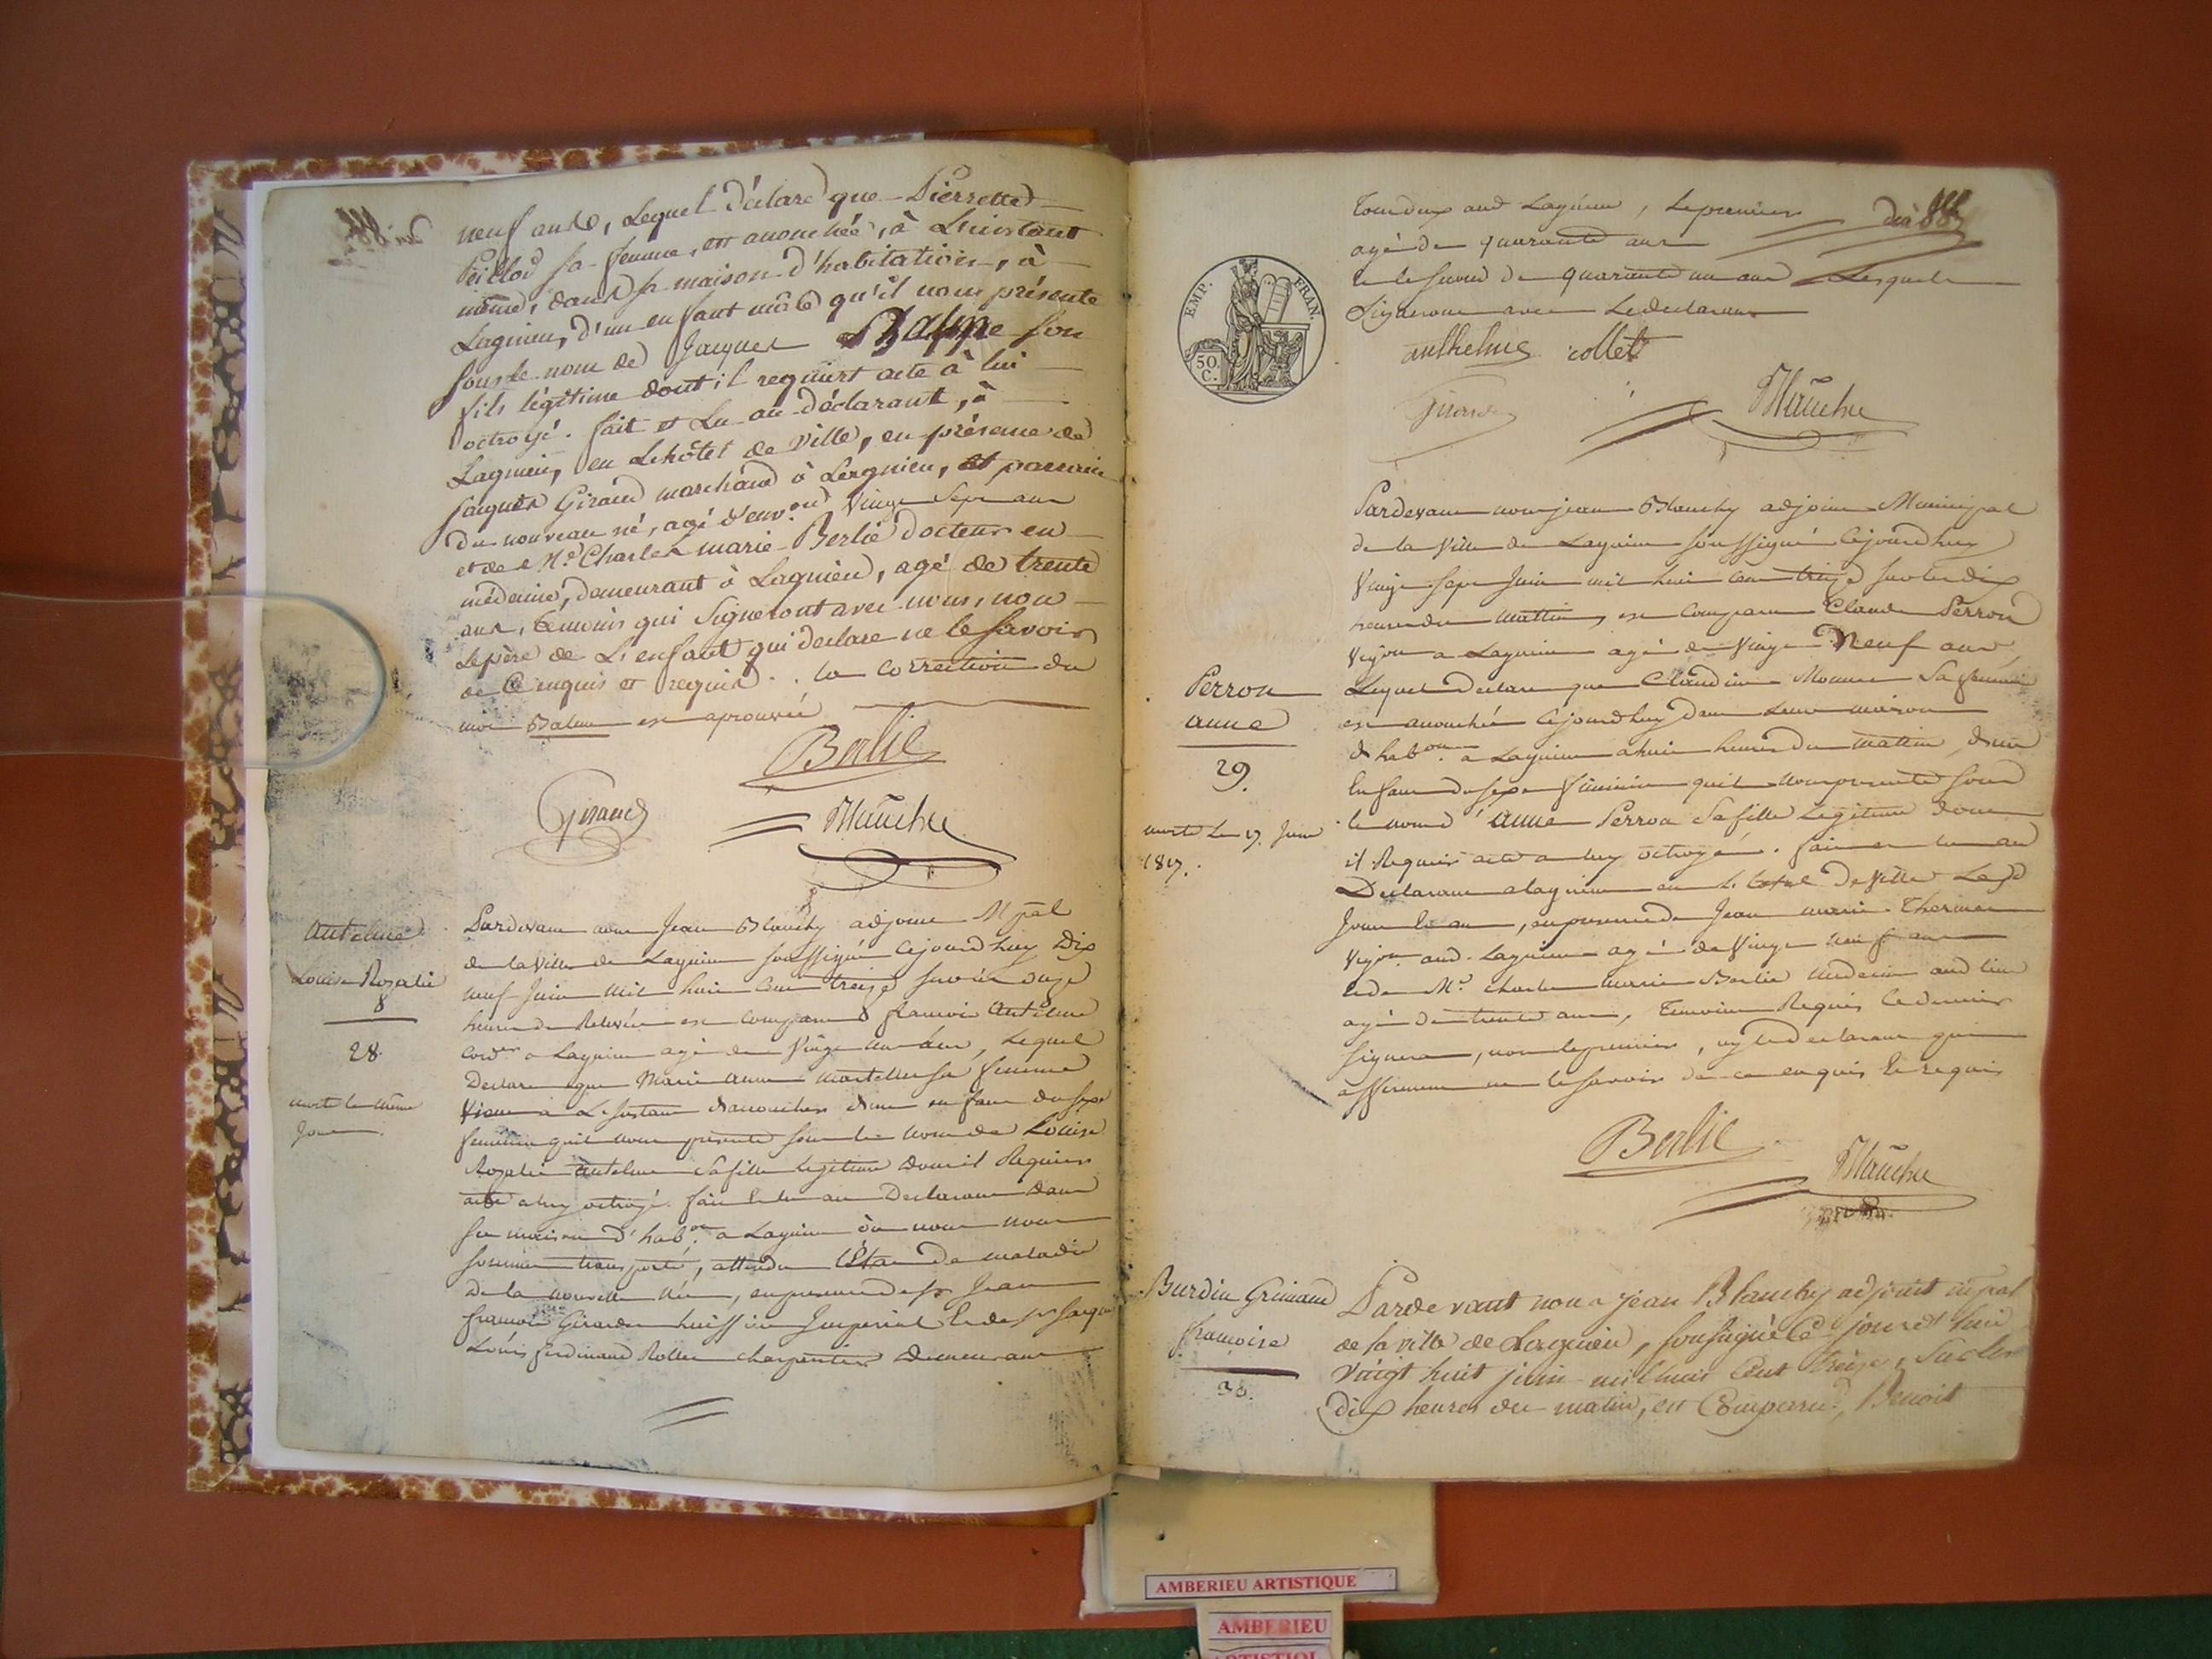 neuf ans, Lequel déclare que Pierrette
Peillod sa femme, est accouchée, à L'instant
même, dans sa maison d'habitation, à
Lagnieu, d'un enfant mâle qu'il nous présente
sous le nom de Jacques Balme son
fils légitime dont il requiert acte à lui
octroyé. fait et Lu au déclarant, à
Lagnieu, en L'hôtel de ville, en présence de
Jaques Giraud marchand à Lagnieu, et parrain
du nouveau né, agé d'env.on Vingt Sept ans
et de Mr. Charles marie Berlié docteur en
médecine, demeurant à Lagnieu, agé de trente
ans, témoins qui Signeront avec nous, non
Le père de L'enfant qui déclare ne le Savoir
de Ce enquis et requis. la correction du
mot Balme est aprouvée
Berlié
Giraud
Blanchy
Antelme
Louise Rozalie
28
morte le même
Jour
Pardevant nous Jean Blanchy adjoint M.pal
de la Ville de Lagnieu soussigné Cejourd'huy Dix
neuf Juin mil huit Cent treize sur les onze
heures de Relevée est Comparu françois Antelme
Cord.er a Lagnieu agé de Vingt un ans, Lequel
Declare que Marie Anne Martellu sa femme
Vient a L'Instant d'accoucher d'un enfant du sexe
feminin quil nous presente sous le nom de Louise
Rozalie Antelme Sa fille legitime dont il Requiert
acte a luy octroyé. fait et lu au Declarant dans
sa maison d'hab.on a Lagnieu où nous nous
sommes transporté, attendu l'Etat de maladie
de la nouvelle née, en presence de sr Jean
francois Girardin huissier Imperial et de sr Jaque
Louis ferdinand Rollet charpentier demeurant
Tous deux aud Lagnieu, Le premier
agé de quarante ans
et le second de quarante un ans Lesquels
Signeront avec Le declarant
anthelme collet
Blanchy
EMP. FRAN.
50 C.
Perron
anne
29.
morte Le 17. Juin
1817.
Pardevant nous jean Blanchy adjoint Municipal
de la Ville de Lagnieu soussigné Cejourd'huy
Vingt sept Juin mil huit Cent treize sur les dix
heures du mattin, est Comparu Claude Perron
Vigon a Lagnieu agé de Vingt Neuf ans,
Lequel Declare que Claudine Monnet Sa femme
est accouchée Cejourd'huy dans Leur maison
d'hab.on a Lagnieu a huit heures du mattin, d'un
Enfant du sexe feminin quil nous presente sous
le nom d'anne Perron Sa fille Legitime dont
il Requiert acte a luy octroyé. fait et lu au
Declarant a lagnieu en L'hotel de Ville Les d
Jour et an, en presence de Jean marie Thermes
Vigon aud. Lagnieu agé de Vingt neuf ans
et de Mr. Charles Marie Berlié medecin aud lieu
agé de trente ans, temoins Requis Ce dernier
signera, non le premier, ny le declarant qui
affirment ne le savoir de ce enquis et requis
Berlié
Blanchy
Burdin Grimaud
françoise
30.
Pardevant nous jean Blanchy adjoint m.pal
de la ville de Lagnieu, soussigné Ce jourd'hui
Vingt huit juin mil huit Cent treize, Sur les
Dix heures du matin, est Comparu, Benoit
AMBERIEU ARTISTIQUE
AMBERIEU